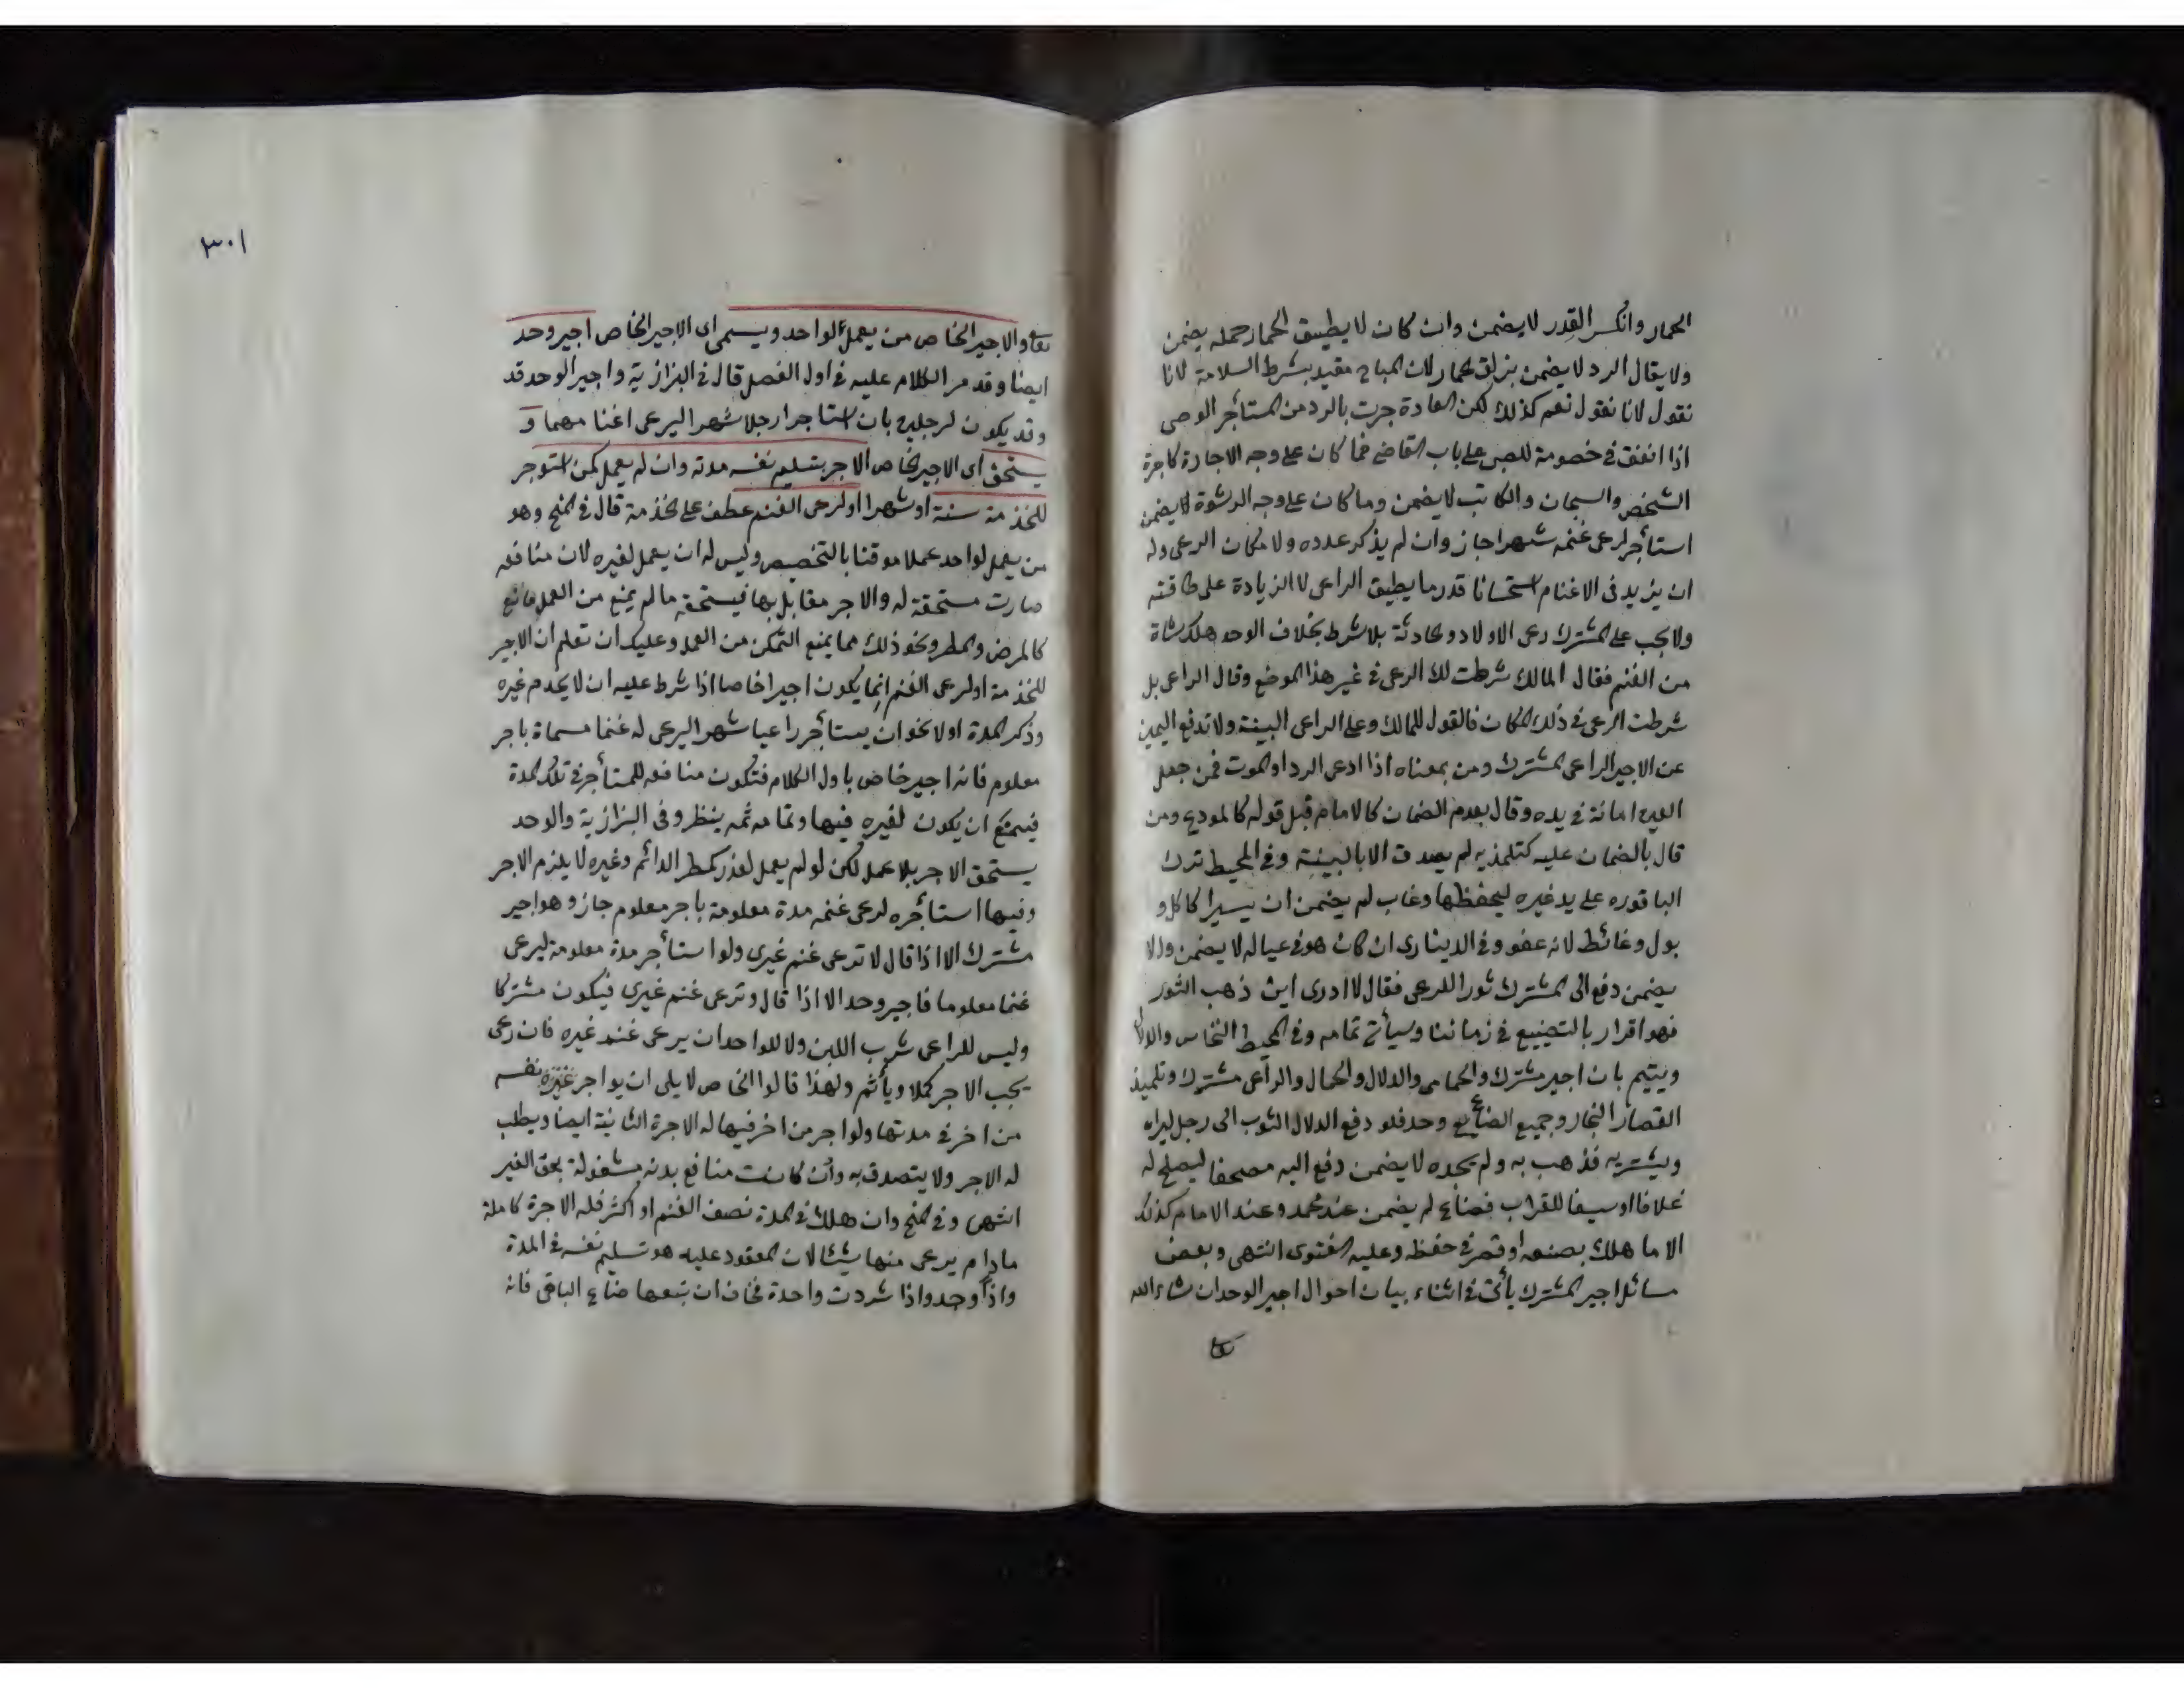 الحمار وانكسر القدر لا يضمن وان كان لا يطيق الحمار حمله يضمن
ولا يقال الرد لا يضمن بزلق الحمار لان المباح مقيد بشرط السلامة لانا
نقول لانا نقول نعم كذلك لكن العادة جرت بالرد من المستأجر الوصى
اذا انفق فى خصومة للصبى على باب القاضى فما كان على وجه الاجارة كاجرة
الشخص والسجان والكاتب لا يضمن وما كان على وجه الرشوة لا يضمن
استأجر لرعى غنمه شهرا جاز وان لم يذكر عدده ولا مكان الرعى وله
ان يزيد فى الاغنام استحسانا قدر ما يطيق الراعى لا الزيادة على طاقته
ولا يجب على المشترك رعى الاولاد الحادثة بلا شرط بخلاف الوحد هلك شاة
من الغنم فقال المالك شرطت لك الرعى فى غير هذا الموضع وقال الراعى بل
شرطت الرعى فى ذلك المكان فالقول للمالك وعلى الراعى البينة ولا تدفع اليمين
عن الاجير الراعى المشترك ومن بمعناه اذا ادعى الرد او الموت فمن جعل
العين امانة فى يده وقال بعدم الضمان كالامام قبل قوله كالمودع ومن
قال بالضمان عليه كتلمذيه لم يصدق الا بالبينة وفى المحيط ترك
الباقوره على يد غيره ليحفظها وغاب لم يضمن ان يسيرا كاكل و
بول وغائط لانه عفو وفى الدينارى ان كان هو فى عياله لا يضمن والا
يضمن دفع الى المشترك ثورا للرعى فقال لا ادرى اين ذهب الثور
فهو اقرار بالتضييع فى زماننا وسيأتى تمامه وفى المحيط النخاس والدلال
ويتيم بان اجير مشترك والحمامى والدلال والحمال والراعى مشترك وتلميذ
القصار النجار وجميع الصنائع وحد فلو دفع الدلال الثوب الى رجل ليراه
ويشتريه فذهب به ولم يجده لا يضمن دفع اليه مصحفا ليصلح له
غلافا او سيفا للقراب فضاع لم يضمن عند محمد وعند الامام كذلك
الا ما هلك بصنعه او قصر فى حفظه وعليه الفتوى انتهى وبعض
مسائل اجير المشترك يأتى فى اثناء بيان احوال اجير الوحد ان شاء الله
٣٠١
والاجير الخاص من يعمل لواحد ويسمى اى الاجير الخاص اجير وحد
ايضا وقد مر الكلام عليه فى اول الفصل قال فى البزازية واجير الوحد قد
وقد يكون لرجلين بان استاجرا رجلا شهرا ليرعى اغنامهما و
يستحق اى الاجير الخاص الاجر بتسليم نفسه مدته وان لم يعمل كمن استوجر
للخذمة سنة او شهرا او لرعى الغنم عطف على الخذمة قال فى المنح وهو
من يعمل لواحد عملا موقتا بالتخصيص وليس له ان يعمل لغيره لان منافعه
صارت مستحقة له والاجر مقابل بها فيستحقه ما لم يمنع من العمل مانع
كالمرض والمطر ونحو ذلك مما يمنع التمكن من العمل وعليك ان تعلم ان الاجير
للخذمة او لرعى الغنم انما يكون اجيرا خاصا اذا شرط عليه ان لا يخدم غيره
وذكر المدة اولا نحو ان يستأجر راعيا شهرا ليرعى له غنما مسماة باجر
معلوم فانه اجير خاص باول الكلام فتكون منافعه للمستأجر فى تلك المدة
فيمتنع ان يكون لغيره فيها وتمامه ثمه ينظر وفى البزازية والوحد
يستحق الاجر بلا عمل لكن لو لم يعمل لعذر كمطر الدائم وغيره لا يلزم الاجر
وفيها استأجره لرعى غنمه مدة معلومة باجر معلوم جاز وهو اجير
مشترك الا اذا قال لا ترعى غنم غيرى ولو استأجر مدة معلومة ليرعى
غنما معلوما فاجير وحد الا اذا قال وترعى غنم غيرى فيكون مشتركا
وليس للراعى شرب اللبن ولا للواحد ان يرعى غنم غيره فان رعى
يجب الاجر كملا ويأثم ولهذا قالوا الخاص لا يلى ان يواجر نفسه
من اخر فى مدتها ولو اجر من اخر فيها له الاجرة الثانية ايضا ويطيب
له الاجر ولا يتصدق به وان كانت منافع بدنه مشغولة بحق الغير
انتهى وفى المنح وان هلك فى المدة نصف الغنم او اكثر فله الاجرة كاملة
مادام يرعى منها شيئا لان المعقود عليه هو تسليم نفسه فى المدة
واذا وجد واذا شردت واحدة فخاف ان تبعها ضاع الباقى فانه